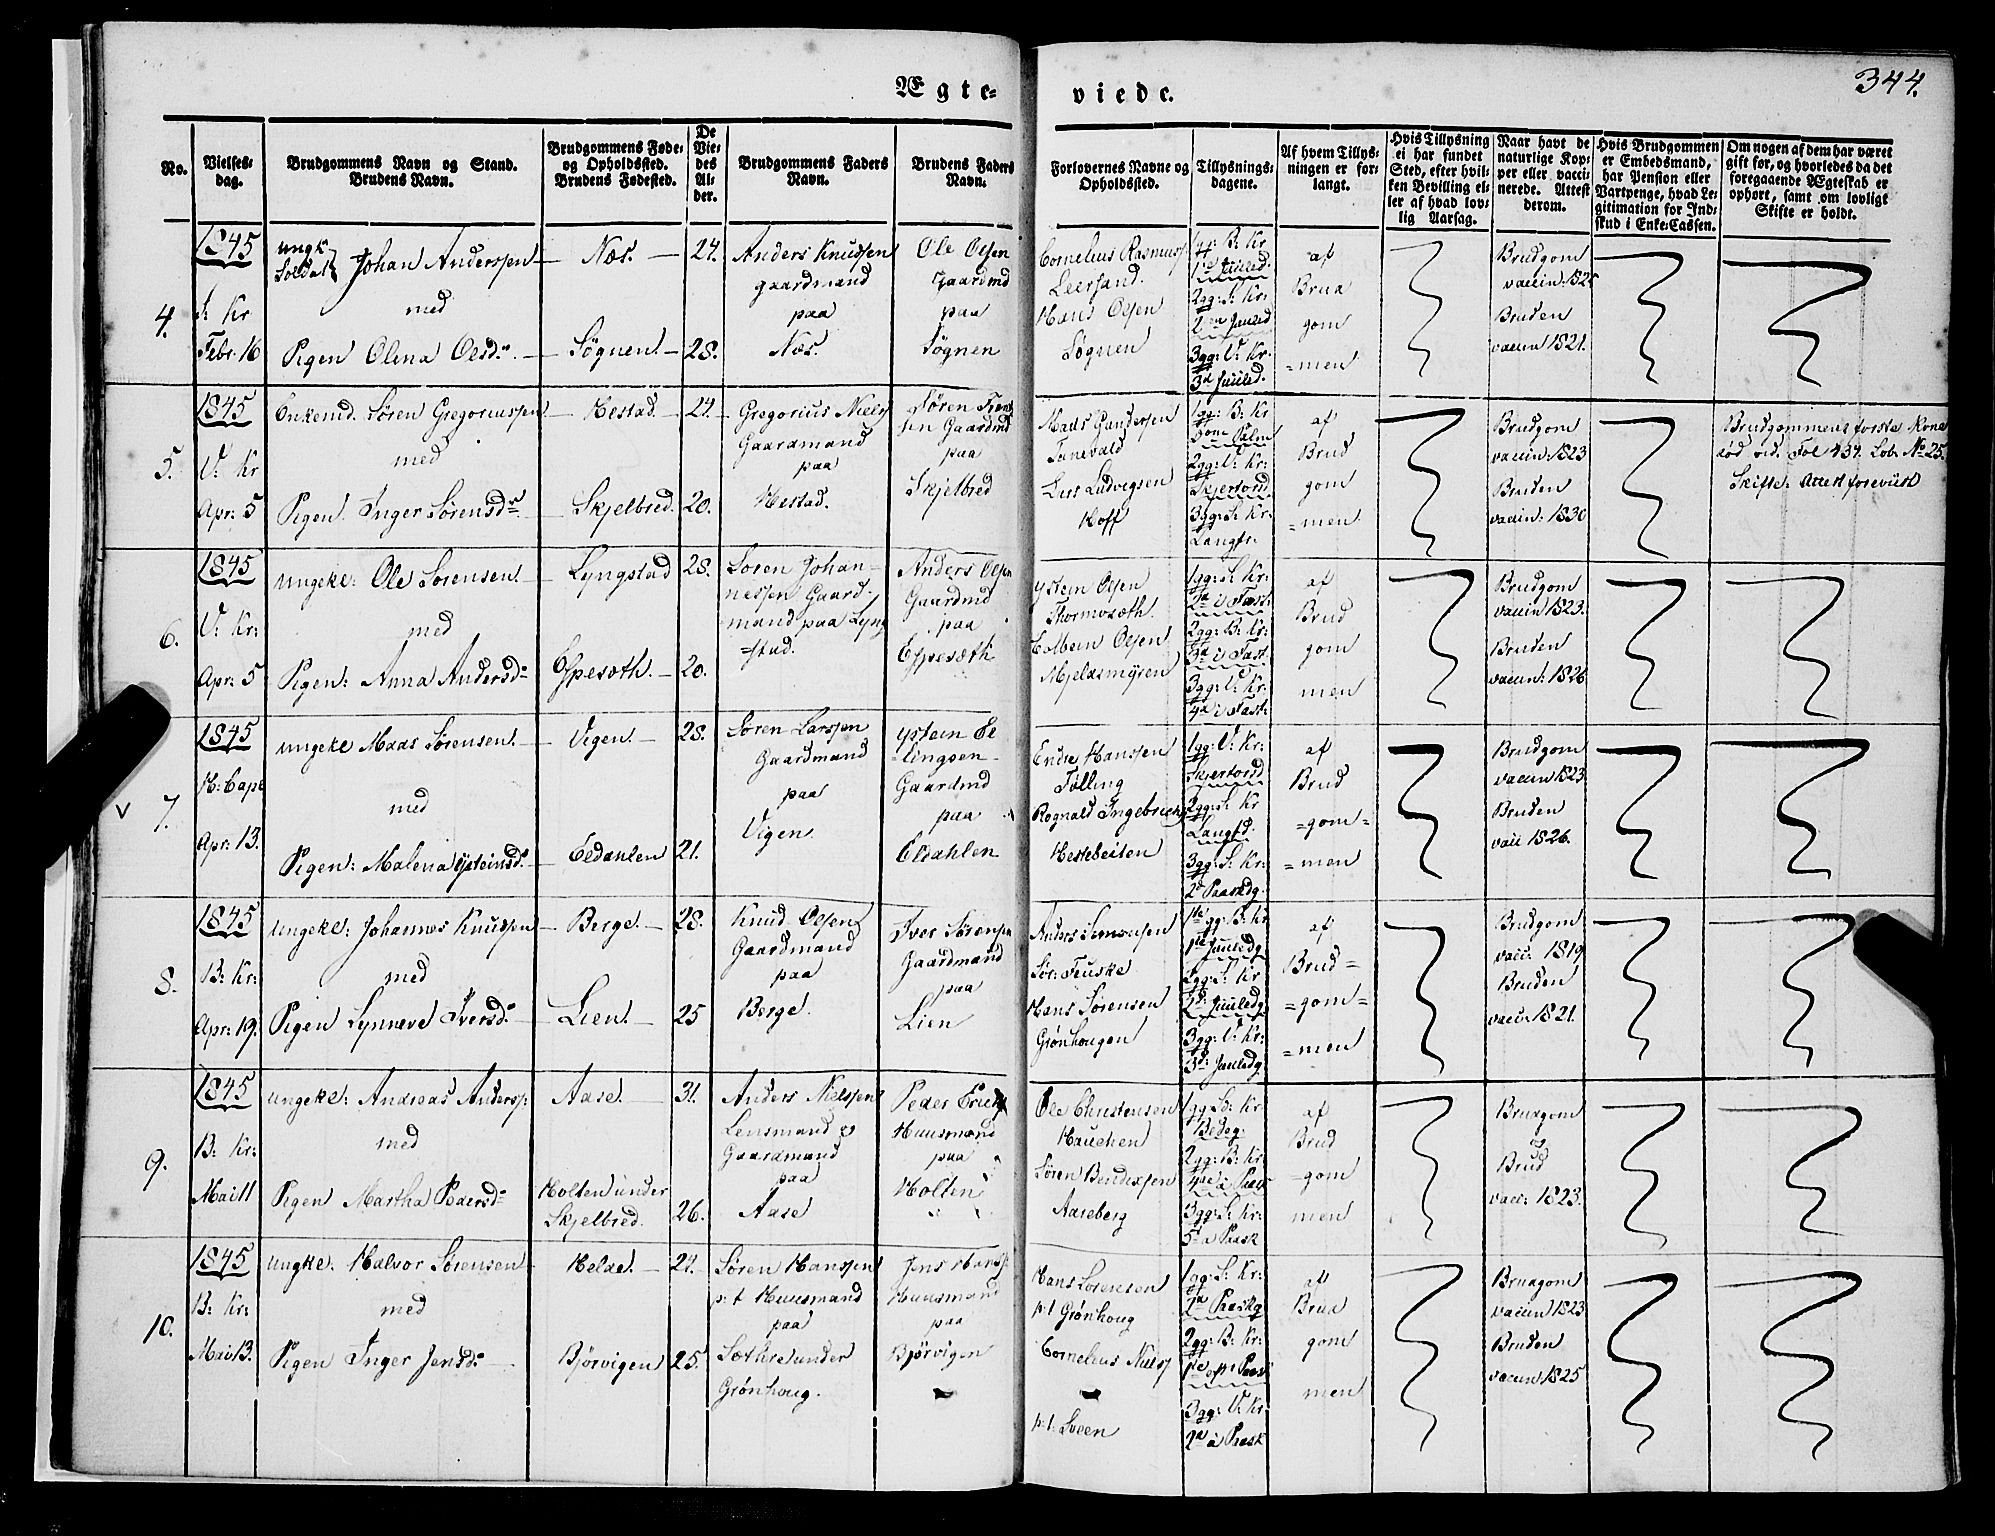 Ægte-
viede.
344.
No.
Vielses-
dag.
Brudgommens Navn og Stand.
Brudens Navn.
Brudgommens Føde-
og Opholdssted.
Brudens Fødested.
De
Vie-
des
Al-
der.
Brudgommens Faders
Navn.
Brudens Faders
Navn.
Forlovernes Navne og
Opholdssted.
Tillysnings-
dagene.
Af hvem Tillys-
ningen er for-
langt.
Hvis Tillysning
ei har fundet
Sted, efter hvil-
ken Bevilling el-
ler af hvad lov-
lig Aarsag.
Naar havt de
naturlige Kop-
per eller vacci-
nerede. Attest
derom.
Hvis Brudgommen
er Embedsmand,
har Pension eller
Vartpenge, hvad Le-
gitimation for Ind-
skud i Enke-Cassen.
Om nogen af dem har været
gift før, og hvorledes da det
foregaaende Ægteskab er
ophørt, samt om lovligt
Skifte er holdt.
4.
1845
Kr
Febr: 16
ungk:
Soldat
Johan Anderssen
med
Pigen Olena Olsd:
Næs.
Søgnen.
24.
28.
Anders Knudsen
gaardmand
paa
Næs.
Ole Olsen
Gaardmd
paa
Søgnen
Cornelius Rasmuss
Leersand.
Hans Olsen
Søgnen
1gg: B: Kr
1te Juled.
2gg: S: Kr:
2en Juled
3gg: V: Kr.
3d Juled.
af
Brud
gom
=men
Brudgom
vaccin: 1825
Bruden
vaccin 1821.
5.
1845
V: Kr
Apr: 5
Enkemd. Søren Gregoriussen
med
Pigen. Inger Sørensdr
Hestad.
Skjelbred.
24.
20.
Gregorius Niels
Gaardmand
paa
Hestad.
Gaardmd
paa
Skjelbred
Mads Gundersen
Tunevald
Lars Ludvigsen
Hoff
1gg: B: Kr
Dom Palm
2gg: V: Kr:
Skjertorsd
3gg: S: Kr:
Langfr:
af
Brud
gom
=men
Brudgom
vaccin: 1823
Bruden
vaccin: 1830
Brudgommens første Kone
død vid. Fol 434. Lob: No 25.
Skifte: Attest foreviist
6.
1845
V: Kr:
Apr: 5
ungeke: Ole Sørensen
med
Pigen: Anna Andersd=
Lyngstad
Espesæth.
28.
20.
Søren Johan-
nessen Gaard-
mand paa Lyng
=stad.
Anders Olsen
Gaardmd
paa
Espesæth
Ystein Olsen
Thormosæth.
Olsen
Mjeldsmyren
1gg: S: Kr:
2d i Fast:
2gg: B: Kr:
3d i Fast.
3gg: V: Kr:
4d i Fast:
af
Brud
gom
men
Brudgom
vaccin 1823.
Bruden
vaccin: 1826
7.
1845
H: Cape
Apr: 13.
ungeke Mads Sørensen.
med
Pigen: Malena Ysteinsd:
Vigen.
Eldahlen
28.
21.
Søren Larssen
Gaardmand
paa
Vigen.
Ystein El
lingsen
Gaardmd
paa
Eldahlen
Endre Hanssen
Tølling
Rognald Ingebrichs
Hestebeiten
1gg: V: Kr:
Skjertorsd
2gg: S: Kr
Langfd.
3gg: S: Kr:
2d Paaskdg.
af
Brud
=gom=
=men
Brudgom
vaccin 1823.
Bruden
vacci 1826.
8.
1845
B: Kr:
Apr: 19.
ungeke: Johannes Knudsen
med
Pigen Synneve Iversd:
Berge.
Lien.
28.
25
Knud Olsen
Gaardmand
paa
Berge.
Iver Sørensen
Gaardmand
paa
Lien
Anders Simonsen
Sør: Feuske
Hans Sørensen
Grønhougen
1te gg: B: Kr
1te Juuledg
2gg: S: Kr
2d: Juuledg
3gg: V: Kr:
3d: Juuledg
af
Brud=
=gom=
=men
Brudgom
vacci: 1819
Bruden
vacci: 1821.
9.
1845
B: Kr:
Mai 11
ungeke: Andreas Anderss:
med
Pigen Martha Pedersd=
Aase.
Holten under
Skjelbred.
31.
26.
Anders Nielssen
Lensmand og
Gaardmand
paa
Aase
Peder
Huusmand
paa
Holten
Ole Christensen
Hauchen
Søren Bendixsen
Aaseberg
1gg: St: Kr:
Bededg:
2gg: B: Kr:
4de i Paask
3gg: S: Kr:
5 a Paask
af
Brud
=gom
men
Brudgom
og
Brud
vacci: 1823.
10.
1845
B: Kr:
Mai 13.
ungke: Halvor Sørensen
med
Pigen Inger Jensd:
Helde.
Bjørvigen
24.
25.
Søren Hanssen
p: t Huusmand
paa
Sæthre under
Grønhoug.
Jens Hanss:
Huusmand
paa
Bjørvigen
Hans Sørensen
p: t Grønhoug
Cornelius Nielss
p: t: Sveen
1gg: S: Kr:
2d Paaskg
2gg: B: Kr:
1te eft: Paask
3gg: V: Kr:
2d a Paask
af
Brud
gom
men
Brudgom
vaccin 1823
Bruden
vaccin 1825